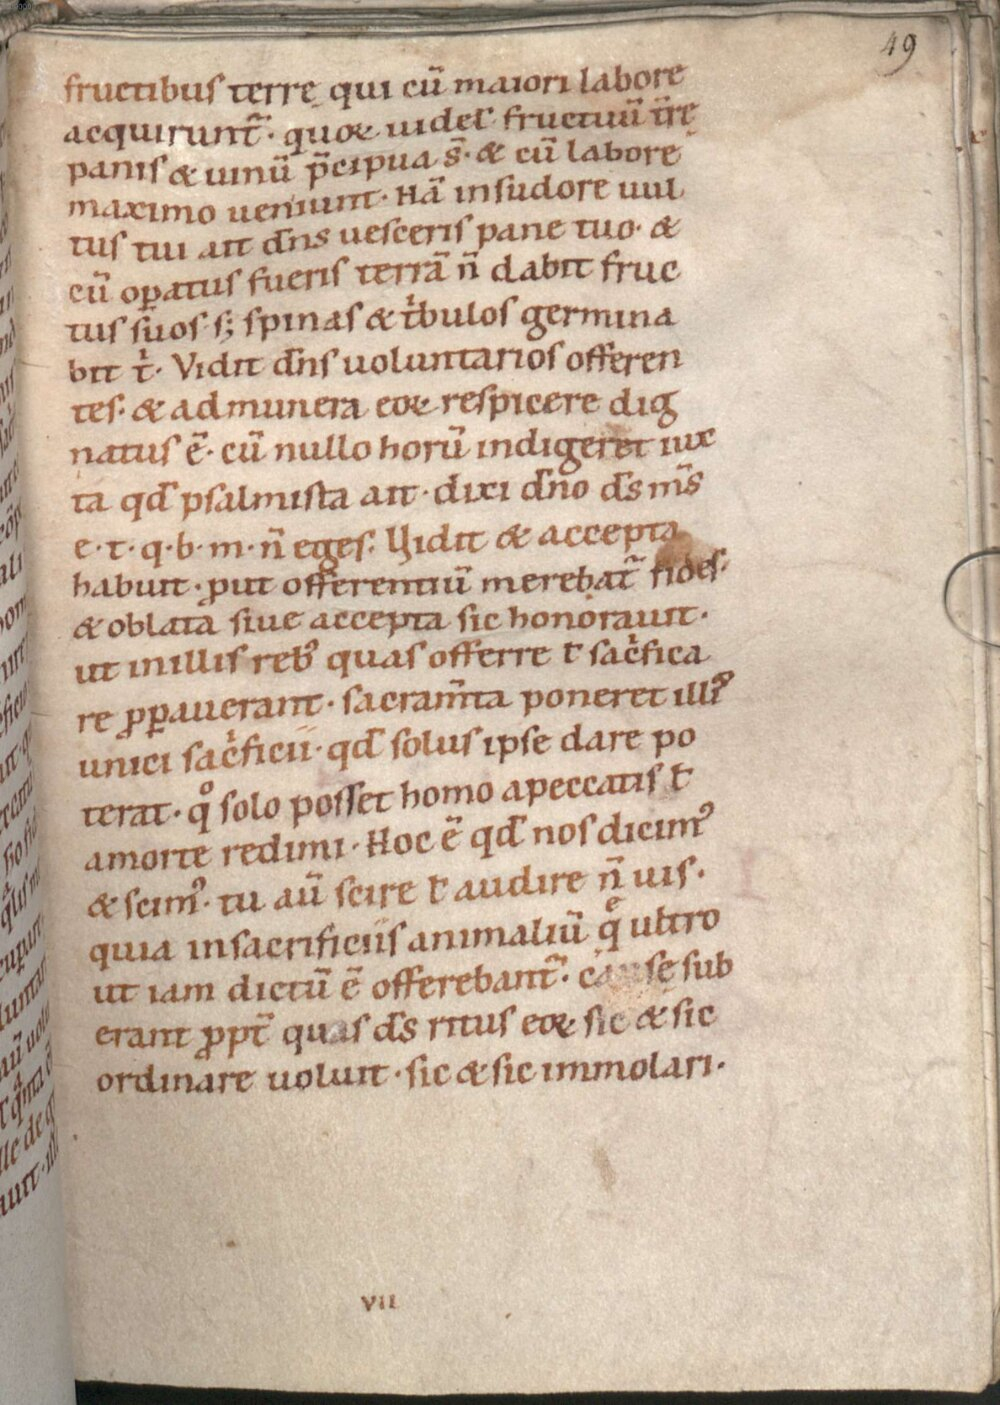 49
fructibus terre qui cū maiori labore
acquirunt̃· quoꝝ uidel̃ fructuū t̃rę
panis & uinū p̃cipua s̃· & cū labore
maximo ueniunt· Nã in sudore uul
tus tui ait dñs uesceris pane tuo· &
cū oꝑatus fueris terrã ñ dabit fruc
tus suos· sꝫ spinas & tⁱbulos germina
bit tⁱ· Vidit dñs uoluntarios offeren
tes· & ad munera eoꝝ respicere dig
natus ē· cū nullo horū indigeret iux
ta qđ psalmista ait· dixi dño đs m̃s
e· t· q· b· m· ñ eges· Vidit & accepta
habuit· ꝓut offerentiū merebat̃ fides·
& oblata siue accepta sic honorauit·
ut in illis rebꝰ quas offerre ł sacⁱfica
re p̄ꝑauerant· sacram̃ta poneret illiꝰ
unici sacⁱficii· qđ solus ipse dare po
terat· qͦ solo posset homo a peccatis ł
a morte redimi· Hoc ē qđ nos dicimꝰ
& scimꝰ· tu aū scire ł audire ñ uis·
quia in sacrificiis animaliū qͤ ultro
ut iam dictū ē offerebant̃· causę sub
erant ꝓpt̃ quas đs ritus eoꝝ sic & sic
ordinare uoluit· sic & sic immolari·
VII